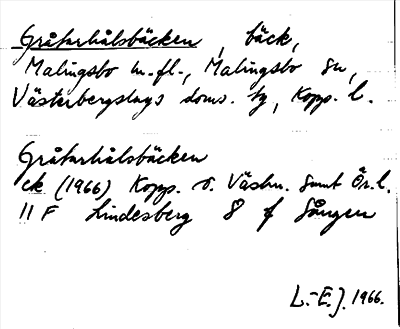 Gråtarhålsbäcken, bäck,
Malingsbo m.fl., Malingsbo sn,
Västerbergslags doms. tg, Kopp. l.
Gråtarhålsbäcken
ek (1966) Kopp. o. Västm. samt Ör. l.
11 F Lindesberg 8 f Sången
L.-E.J. 1966.